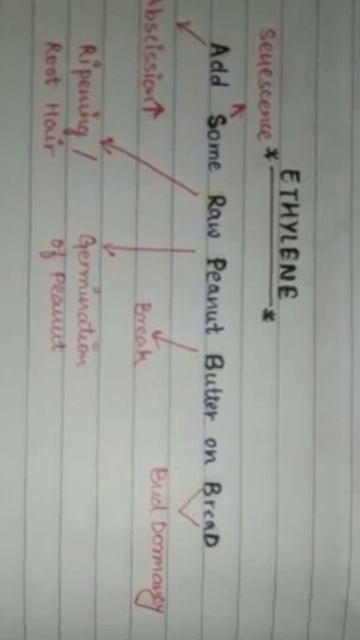 *ETHYLENE*
Senescence
Add Some Raw Peanut Butter on BreaD
Abscission↑
Break
Bud Dormancy
Ripening /
Root Hair
Germination
of Peanut